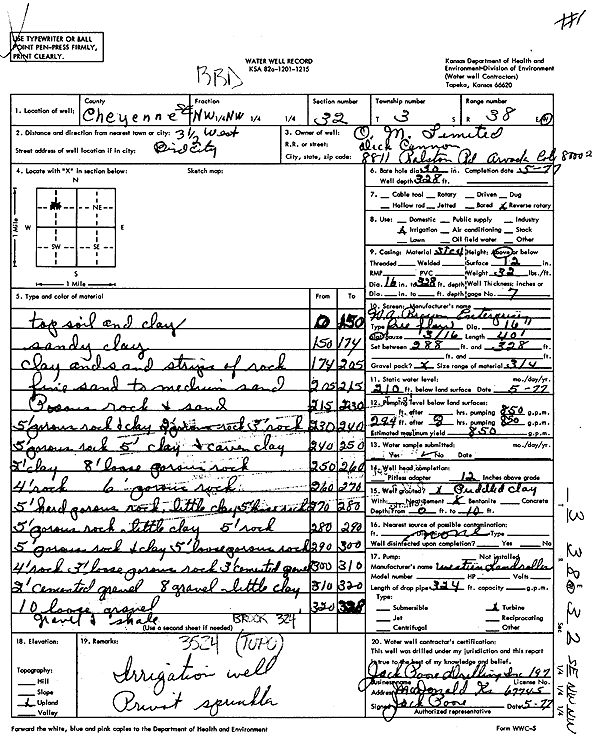 #1
USE TYPEWRITER OR BALL
POINT PEN-PRESS FIRMLY,
PRINT CLEARLY.
WATER WELL RECORD
KSA 82a-1201-1215
BBD
Kansas Department of Health and
Environment-Division of Environment
(Water well Contractors)
Topeka, Kansas 66620
1. Location of well:
County
Cheyenne
Fraction
SE NW 1/4 NW 1/4 1/4
Section number
32
Township number
T 3 S
Range number
R 38 E/W
2. Distance and direction from nearest town or city: 3 1/2 West
Street address of well location if in city: Bird City
3. Owner of well: O. M. Limited
R.R. or street: Dick Cannon
City, state, zip code: 8811 Ralston Rd Arvada Colo 80002
4. Locate with "X" in section below:
Sketch map:
N
NE
W
E
SW
SE
S
1 Mile
1 Mile
6. Bore hole dia. 30 in. Completion date 5-77
Well depth 328 ft.
7. Cable tool Rotary Driven Dug
Hollow rod Jetted Bored X Reverse rotary
8. Use: Domestic Public supply Industry
X Irrigation Air conditioning Stock
Lawn Oil field water Other
9. Casing: Material Steel Height: Above or below
Threaded Welded Surface 12 in.
RMP PVC Weight 32 lbs./ft.
Dia. 16 in. to 328 ft. depth Wall Thickness: inches or
Dia. in. to ft. depth gage No. 7
5. Type and color of material From To
top soil and clay 0 150
sandy clay 150 174
clay and sand strips of rock 174 205
fine sand to medium sand 205 215
Porous rock & sand 215 230
5' porous rock & clay 2' porous rock 3' rock 230 240
5' porous rock 5' clay & caven clay 240 250
2' clay 8' loose porous rock 250 260
4' rock 6' porous rock 260 270
5' hard porous rock little clay 5' loose rock 270 280
5' porous rock little clay 5' rock 280 290
5' porous rock & clay 5' loose porous rock 290 300
4' rock 3' loose porous rock 3' cemented gravel 300 310
2' cemented gravel 8 gravel little clay 310 320
10 loose gravel 320 328
gravel & shale BROCK 324
(Use a second sheet if needed)
10. Screen: Manufacturer's name
Type free flow Dia. 16"
Slot/gauze 3/16 Length 40'
Set between 288 ft. and 328 ft.
ft. and ft.
Gravel pack? X Size range of material 3/4
11. Static water level: mo./day/yr.
210 ft. below land surface Date 5-77
12. Pumping level below land surfaces:
ft. after hrs. pumping 850 g.p.m.
294 ft. after 8 hrs. pumping 850 g.p.m.
Estimated maximum yield 850 g.p.m.
13. Water sample submitted: mo./day/yr.
Yes No Date
14. Well head completion:
Pitless adapter 12 Inches above grade
15. Well grouted? X Puddled clay
With: Neat cement X Bentonite Concrete
Depth: From 0 ft. to 10 ft.
16. Nearest source of possible contamination:
ft. none Type
Well disinfected upon completion? Yes No
17. Pump: Not installed
Manufacturer's name Western Landroller
Model number HP Volts
Length of drop pipe 324 ft. capacity g.p.m.
Type:
Submersible X Turbine
Jet Reciprocating
Centrifugal Other
18. Elevation:
Topography:
Hill
Slope
X Upland
Valley
19. Remarks: 3524 (TOPO)
Irrigation well
Pivot sprinkler
20. Water well contractor's certification:
This well was drilled under my jurisdiction and this report
is true to the best of my knowledge and belief.
Jack Pore Drilling Inc 197
Business name License No.
Address McDonald Ks 67745
Signed Jack Pore Date 5-77
Authorized representative
T 3 R 38 E/W Sec 32 SE NW NW
1/4 1/4 1/4
Forward the white, blue and pink copies to the Department of Health and Environment
Form WWC-5